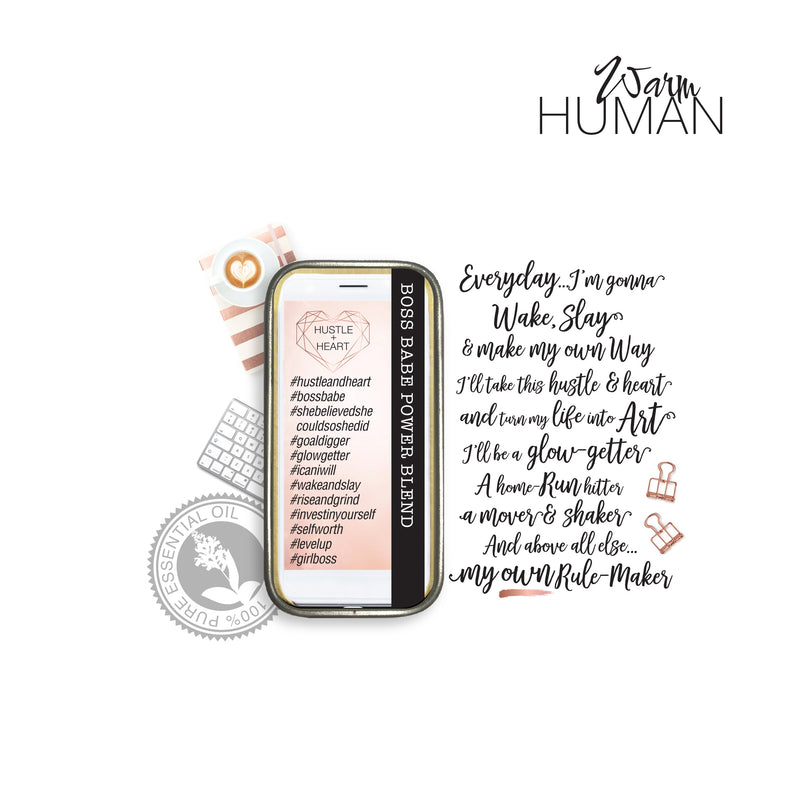 Warm
HUMAN
HUSTLE
+
HEART
#hustleandheart
#bossbabe
#shebelievedshe
couldsoshedid
#goaldigger
#glowgetter
#icaniwill
#wakeandslay
#riseandgrind
#investinyourself
#selfworth
#levelup
#girlboss
BOSS BABE POWER BLEND
Everyday...I'm gonna
Wake, Slay
& make my own Way
I'll take this hustle & heart
and turn my life into Art
I'll be a glow-getter
A home-Run hitter
a mover & shaker
And above all else...
my own Rule-Maker
100% PURE ESSENTIAL OIL